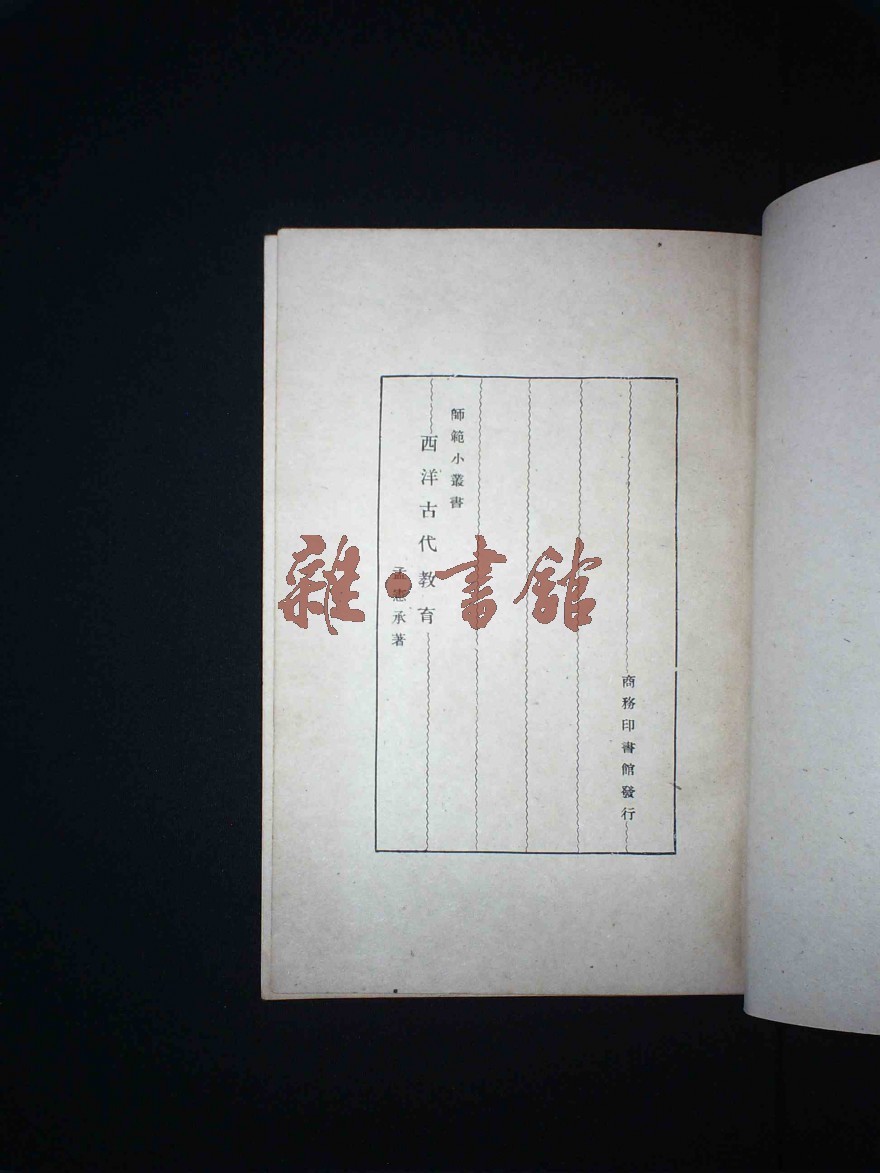 師範小叢書
西洋古代教育
孟憲承著
商務印書館發行
雜·書館